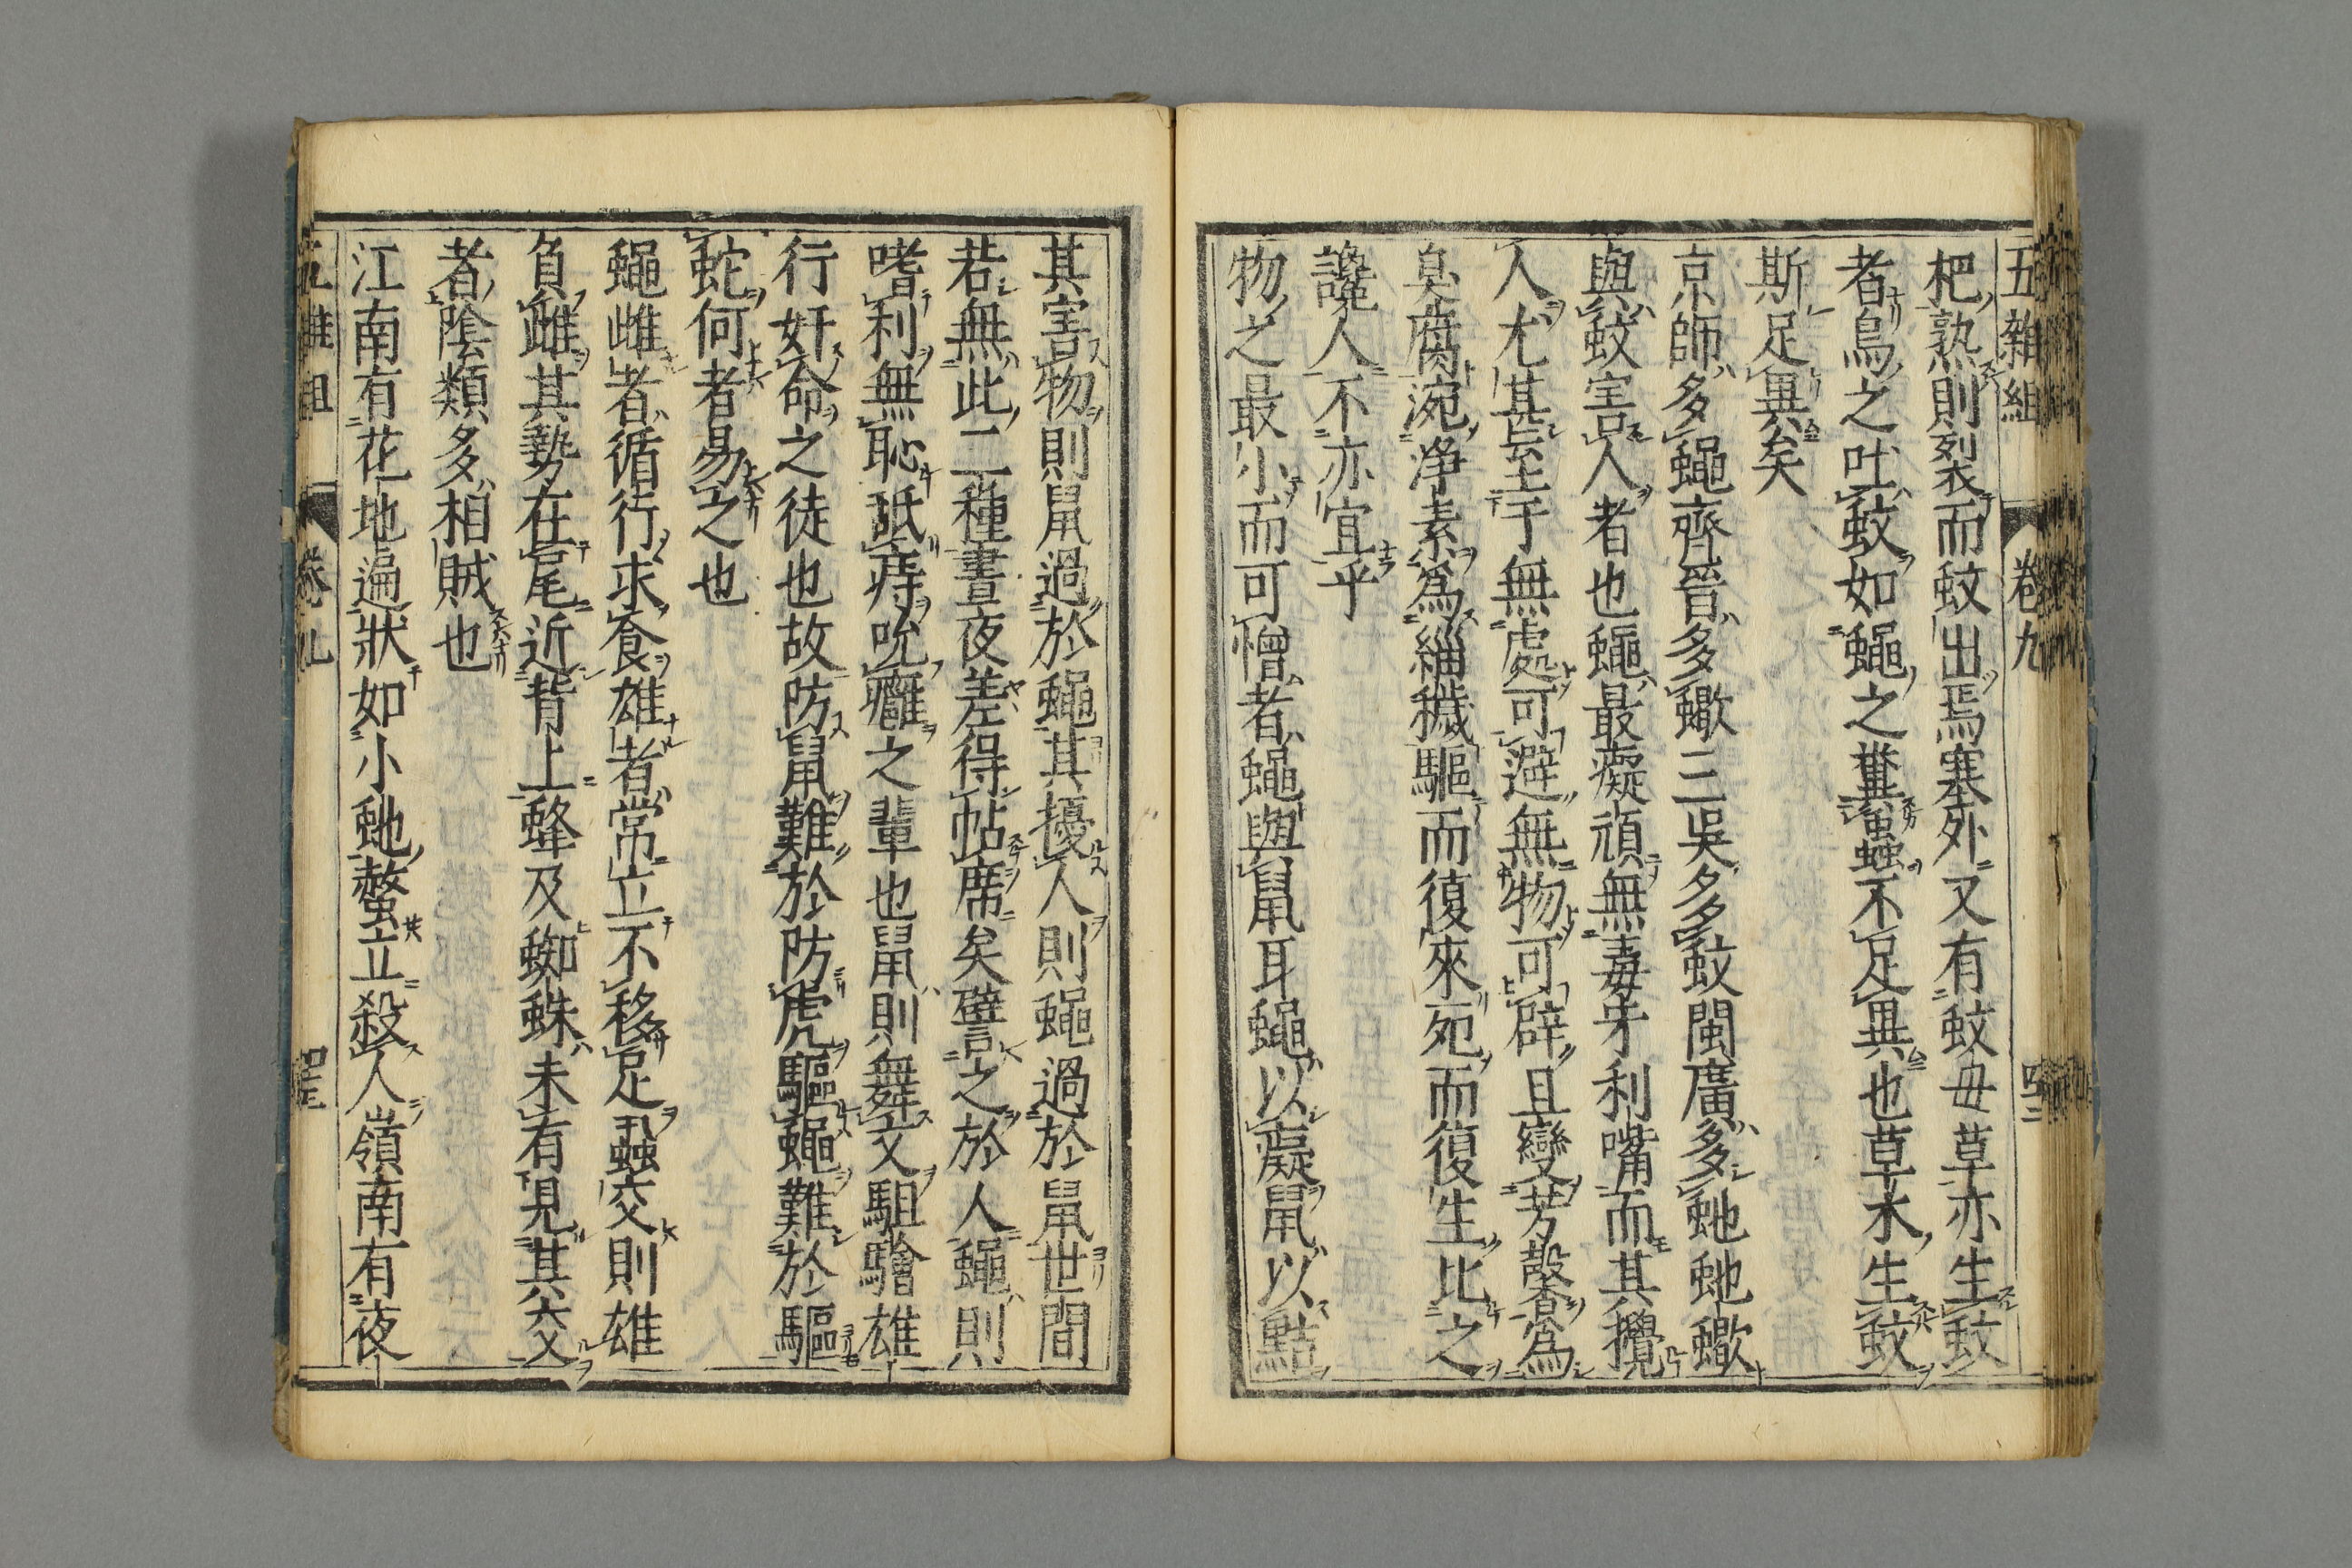 五雜組 卷九 四二
杷熟則裂而蚊出焉塞外又有蚊母草亦生蚊
者鳥之吐蚊如蠅之糞蟲不足異也草水生蚊
斯足異矣
京師多蠅齊晉多蠍三吳多蚊閩廣多虵虵蠍
與蚊害人者也蠅最癡頑無毒牙利嘴而其攪
人尤甚至于無處可避無物可辟且變芳馨為
臭腐涴淨素爲緇穢驅而復來死而復生比之
讒人不亦宜乎
物之最小而可憎者蠅與鼠耳蠅以癡鼠以黠
其害物則鼠過於蠅其擾人則蠅過於鼠世間
若無此二種晝夜差得帖席矣譬之於人蠅則
嗜利無恥舐痔吮癰之輩也鼠則舞文駔驓雄
行奸命之徒也故防鼠難於防虎驅蠅難於驅
蛇何者易之也
蠅雌者循行求食雄者常立不移足蝨交則雄
負雌其勢在尾近背上蜂及蜘蛛未有見其交
者陰類多相賊也
江南有花地遍狀如小虵螫立殺人嶺南有夜
五雜組 卷九